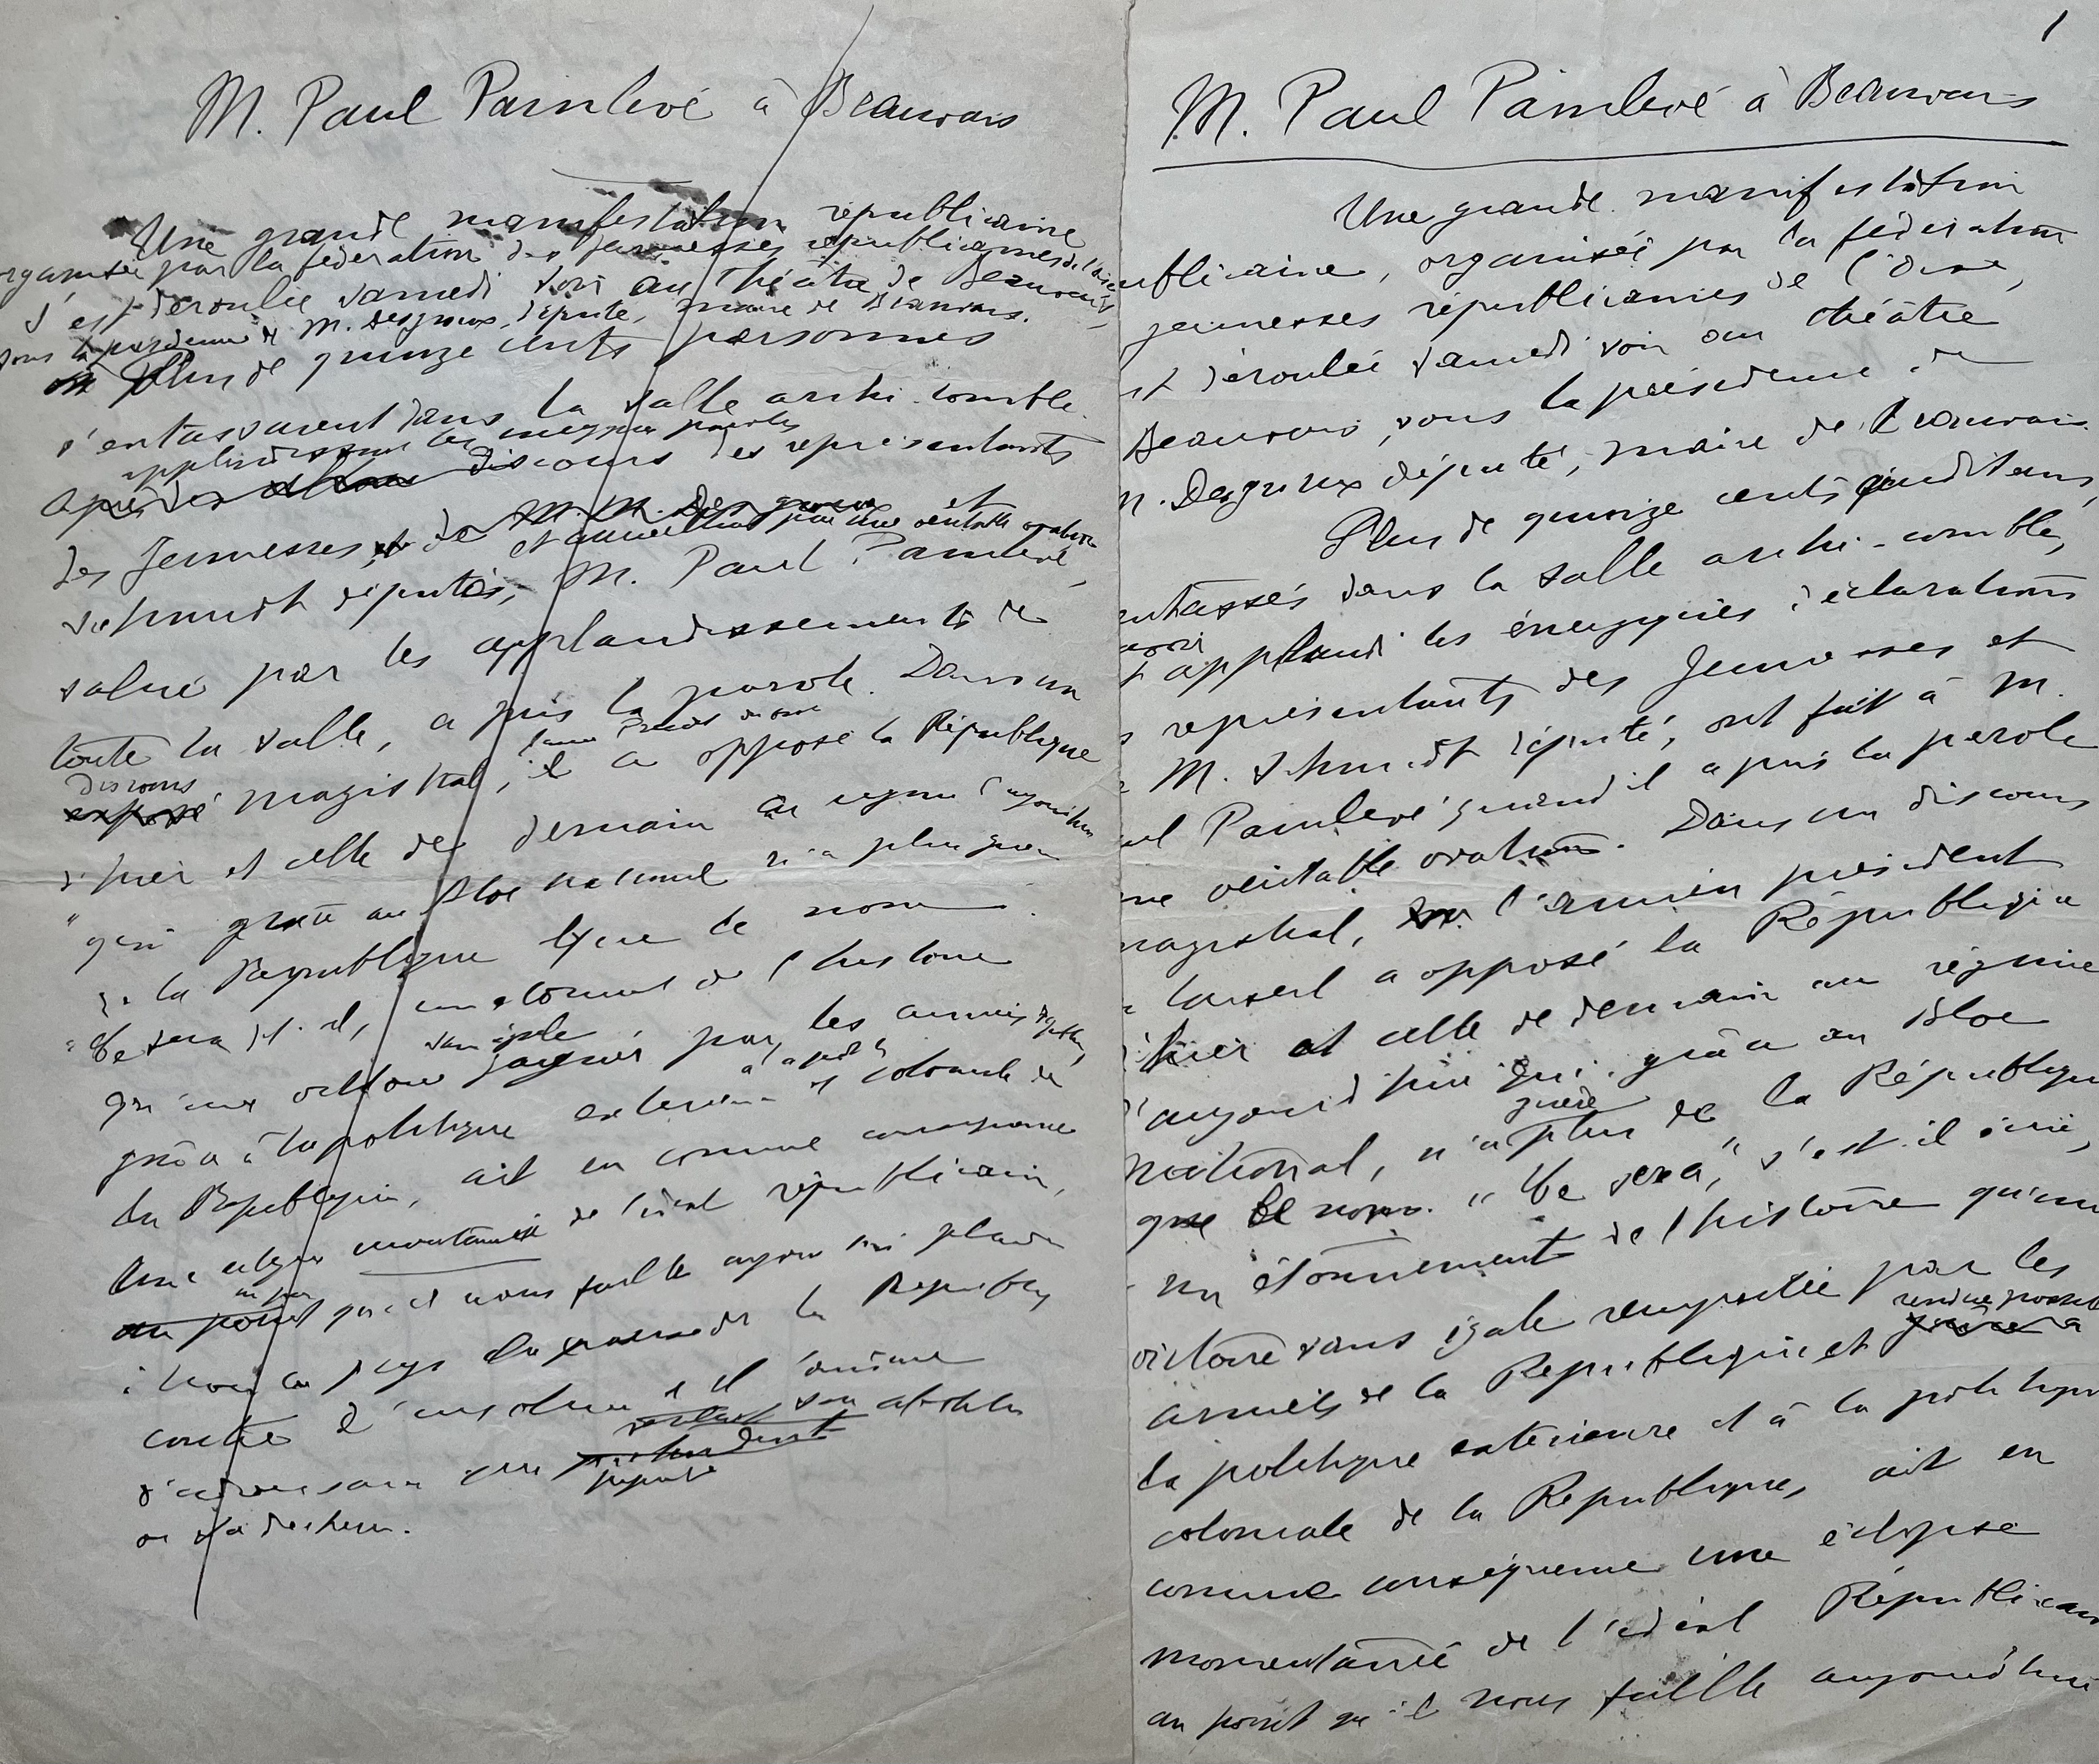 M. Paul Painlevé à Beauvais
Une grande manifestation républicaine
organisée par la fédération des jeunesses républicaines de l'Oise
s'est déroulée samedi soir au Théâtre de Beauvais,
sous la présidence de M. Desgroux, député, maire de Beauvais.
Plus de quinze cents personnes
s'entassaient dans la salle archi-comble.
applaudissant les
Après discours des représentants
des Jeunesses, et de M. M. Desgroux et
et accueilli par une véritable ovation
Schmidt députés, M. Paul Painlevé,
salué par les applaudissements de
toute la salle, a pris la parole. Dans un
discours
exposé magistral, il a opposé la République
d'hier et celle de demain au régime d'aujourd'hui
qui grâce au Bloc national n'a plus que
de la République que le nom.
"Ce sera, dit-il, un étonnement de l'histoire
sans égale
qu'une victoire gagnée par les armées
grâce à la politique extérieure et coloniale de
la République, ait eu comme conséquence
une éclipse momentanée de l'idéal républicain,
au point qu'il nous faille aujourd'hui plaider
devant le pays la cause de la République
contre
ou
1
M. Paul Painlevé à Beauvais
Une grande manifestation
ublicaine, organisée par la fédération
jeunesses républicaines de l'Oise,
st déroulée samedi soir au théâtre
Beauvais, sous la présidence de
M. Desgroux député, maire de Beauvais.
Plus de quinze cents auditeurs,
entassés dans la salle archi-comble,
avoir
t applaudi les énergiques déclarations
s représentants des Jeunesses et
M. Schmidt député, ont fait à M.
ul Painlevé quand il a pris la parole
ne véritable ovation. Dans un discours
magistral, l'ancien président
Conseil a opposé la République
d'hier et celle de demain au régime
d'aujourd'hui qui, grâce au Bloc
guère
national, n'a plus de la République
que le nom. "Ce sera," s'est-il écrié,
un étonnement de l'histoire qu'une
victoire sans égale remportée par les
rendue possible
armées de la République et grâce à
la politique extérieure et à la politique
coloniale de la République, ait eu
comme conséquence une éclipse
momentanée de l'idéal Républicain
au point qu'il nous faille aujourd'hui